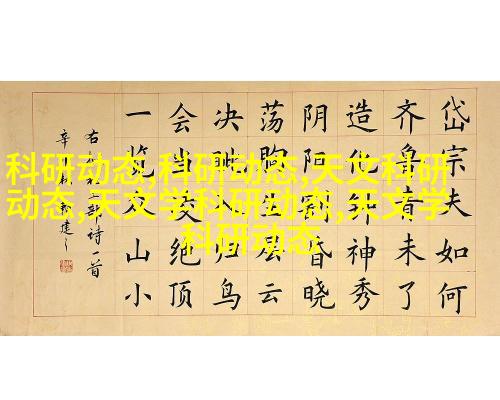 科研动态,科研动态,天文科研
动态,天文学科研动态,天文学
科研动态
岱宗夫如何
齐鲁青未了
造化钟神秀
阴阳割昏晓
荡胸生层云
决眦入归鸟
会当凌绝顶
一览众山小
右 诗一首
辛 建